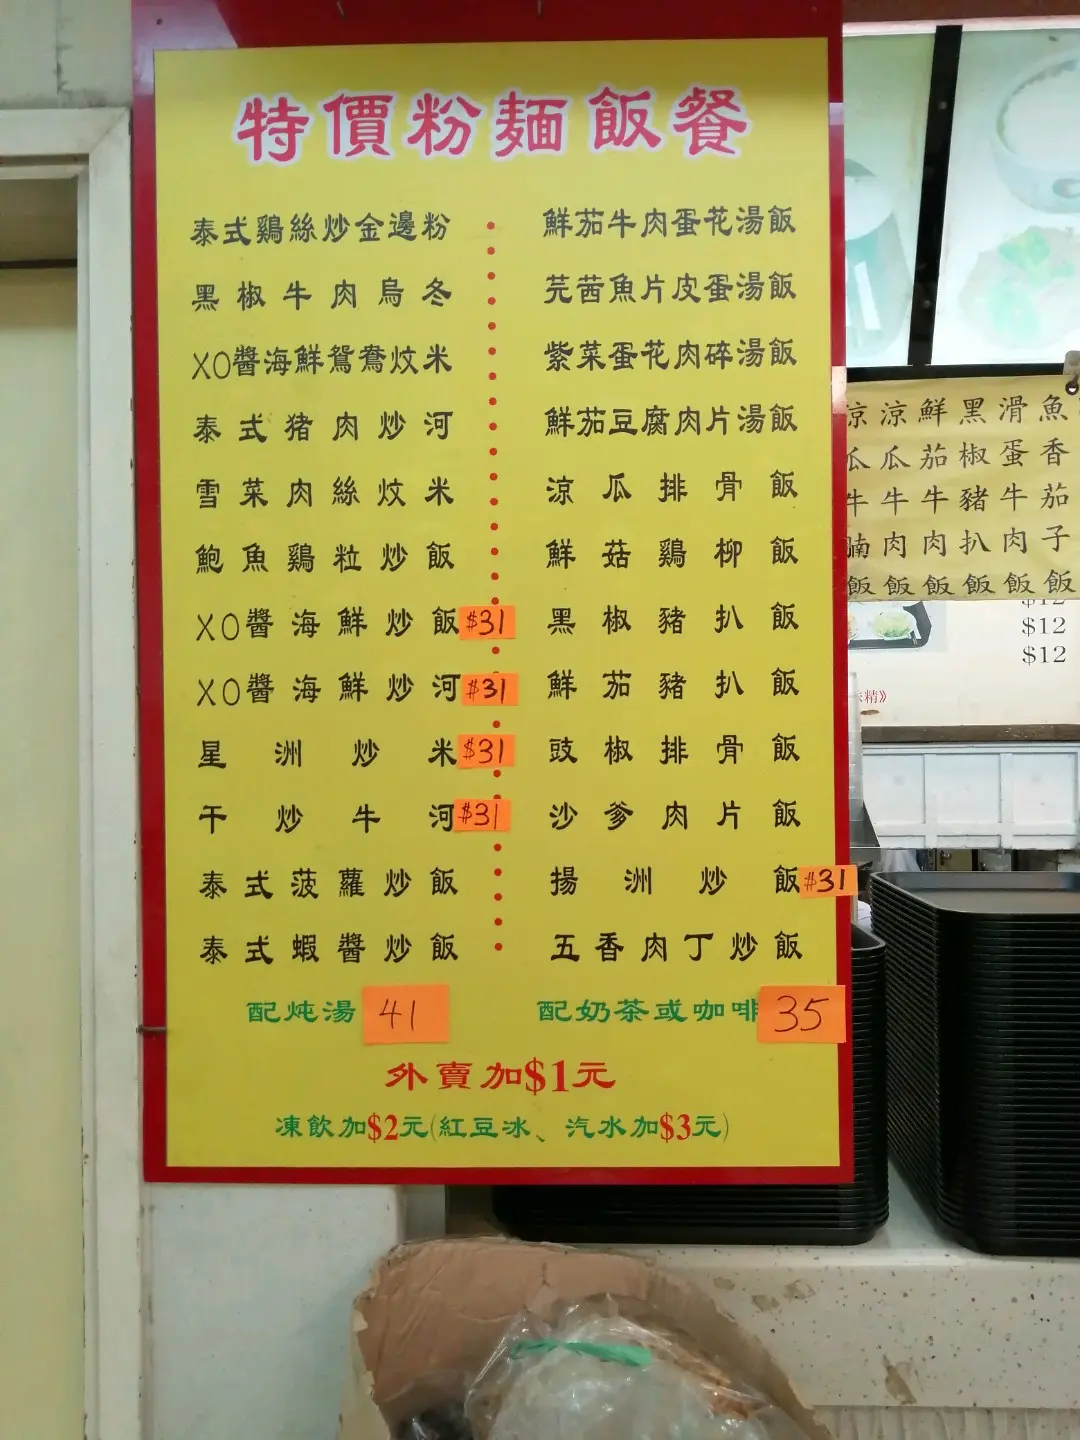 特價粉麵飯餐
泰式鷄絲炒金邊粉
黑椒牛肉烏冬
XO醬海鮮鴛鴦炆米
泰式猪肉炒河
雪菜肉絲炆米
鮑魚鷄粒炒飯
XO醬海鮮炒飯 $31
XO醬海鮮炒河 $31
星洲炒米 $31
干炒牛河 $31
泰式菠蘿炒飯
泰式蝦醬炒飯
鮮茄牛肉蛋花湯飯
芫茜魚片皮蛋湯飯
紫菜蛋花肉碎湯飯
鮮茄豆腐肉片湯飯
涼瓜排骨飯
鮮菇鷄柳飯
黑椒豬扒飯
鮮茄豬扒飯
豉椒排骨飯
沙爹肉片飯
揚洲炒飯 $31
五香肉丁炒飯
配炖湯 41
配奶茶或咖啡 35
外賣加$1元
凍飲加$2元(紅豆冰、汽水加$3元)
魚香茄子飯
滑蛋牛肉飯
黑椒豬扒飯
鮮茄牛肉飯
涼瓜牛肉飯
涼瓜牛腩飯
$12
$12
$12